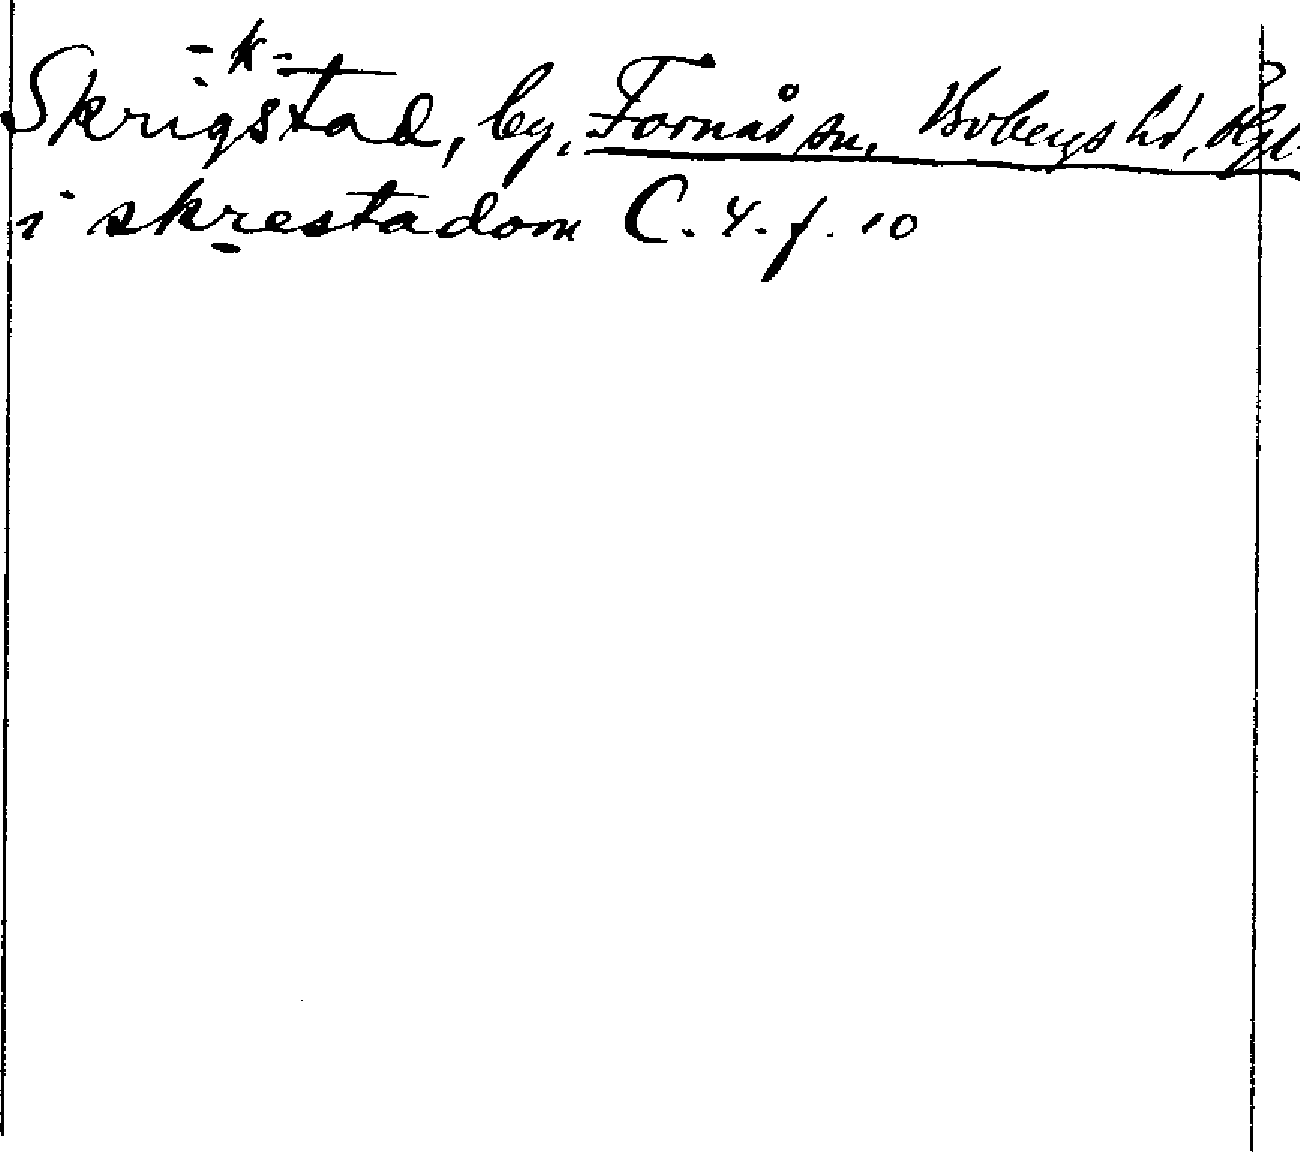 -k-
Skrigstad, by, Fornåsa sn, Bobergs hd, Ögl.
i skrestadom C. 4. f. 10